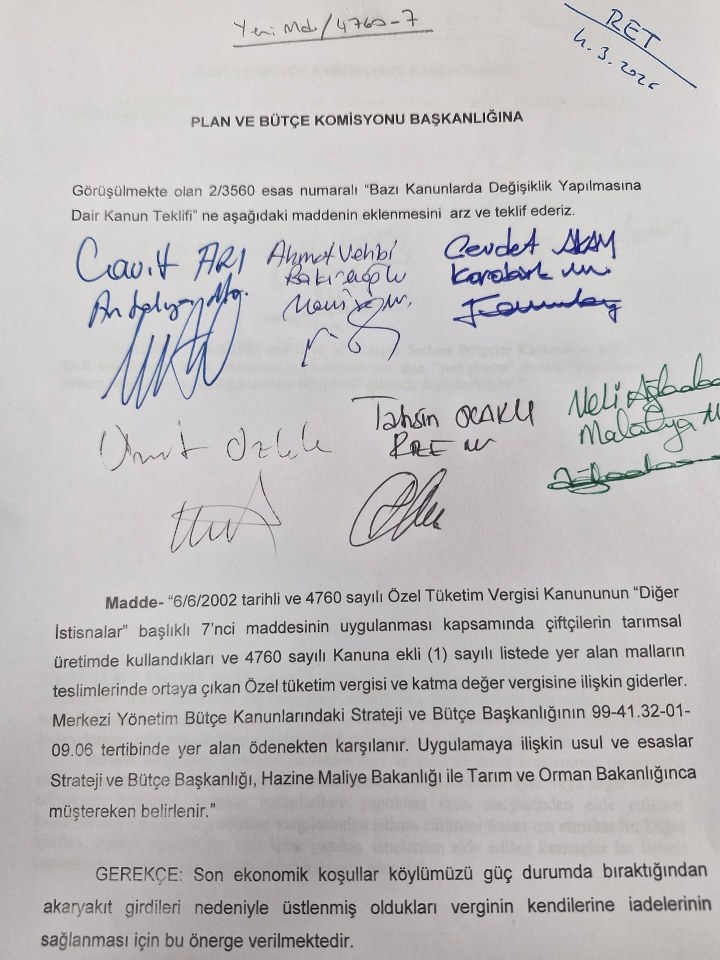 Yeni Md/4760-7
RET
4.3.2026
PLAN VE BÜTÇE KOMİSYONU BAŞKANLIĞINA
Görüşülmekte olan 2/3560 esas numaralı “Bazı Kanunlarda Değişiklik Yapılmasına
Dair Kanun Teklifi” ne aşağıdaki maddenin eklenmesini arz ve teklif ederiz.
Cavit ARI Ahmet Vehbi Cevdet AKAY
Antalya Bakırlıoğlu Karabük
Manisa
Tahsin OCAKLI Veli Ağbaba
Malatya
Madde- “6/6/2002 tarihli ve 4760 sayılı Özel Tüketim Vergisi Kanununun “Diğer
İstisnalar” başlıklı 7’nci maddesinin uygulanması kapsamında çiftçilerin tarımsal
üretimde kullandıkları ve 4760 sayılı Kanuna ekli (1) sayılı listede yer alan malların
teslimlerinde ortaya çıkan Özel tüketim vergisi ve katma değer vergisine ilişkin giderler.
Merkezi Yönetim Bütçe Kanunlarındaki Strateji ve Bütçe Başkanlığının 99-41.32-01-
09.06 tertibinde yer alan ödenekten karşılanır. Uygulamaya ilişkin usul ve esaslar
Strateji ve Bütçe Başkanlığı, Hazine Maliye Bakanlığı ile Tarım ve Orman Bakanlığınca
müştereken belirlenir.”
GEREKÇE: Son ekonomik koşullar köylümüzü güç durumda bıraktığından
akaryakıt girdileri nedeniyle üstlenmiş oldukları verginin kendilerine iadelerinin
sağlanması için bu önerge verilmektedir.